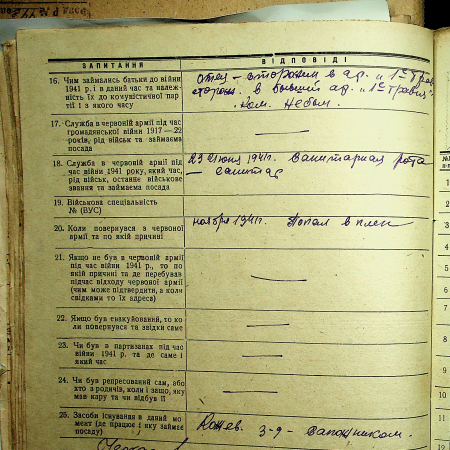 ЗАПИТАННЯ
ВІДПОВІДІ
16. Чим займались батьки до війни
1941 р. і в даний час та належ-
ність їх до комуністичної пар-
тії і з якого часу
отец – сторожем в ар. „1е Трав
сторож. в бывший ар. „1е травня".
Ком. не был.
17. Служба в червоній армії під час
громадянської війни 1917—22
років, рід військ та займаема
посада
18. Служба в червоній армії під
час війни 1941 року, який час,
рід військ, останнє військове
звання та займаема посада
23 июня 1941г. Санитарная рота
— санитар
19. Військова спеціальність
№ (ВУС)
20. Коли повернувся в червоної
армії та по якій причині
ноября 1941г. Попал в плен
21. Якщо не був в червоній армії
під час війни 1941 р., то по
якій причині та де перебував
підчас відходу червоної армії
(чим може підтвердити, а коли
свідками то їх адреса)
22. Якщо був евакуйований, то ко-
ли повернувся та звідки саме
23. Чи був в партизанах під час
війни 1941 р. та де саме і
який час
24. Чи був репресований сам, або
хто з родичів, коли і защо, яку
мав кару та чи відбув її
25. Засоби існування в даний мо-
мент (де працює і яку займає
посаду)
3-д – сапожником.
1
2
3
4
5
6
7
8
9
10
11